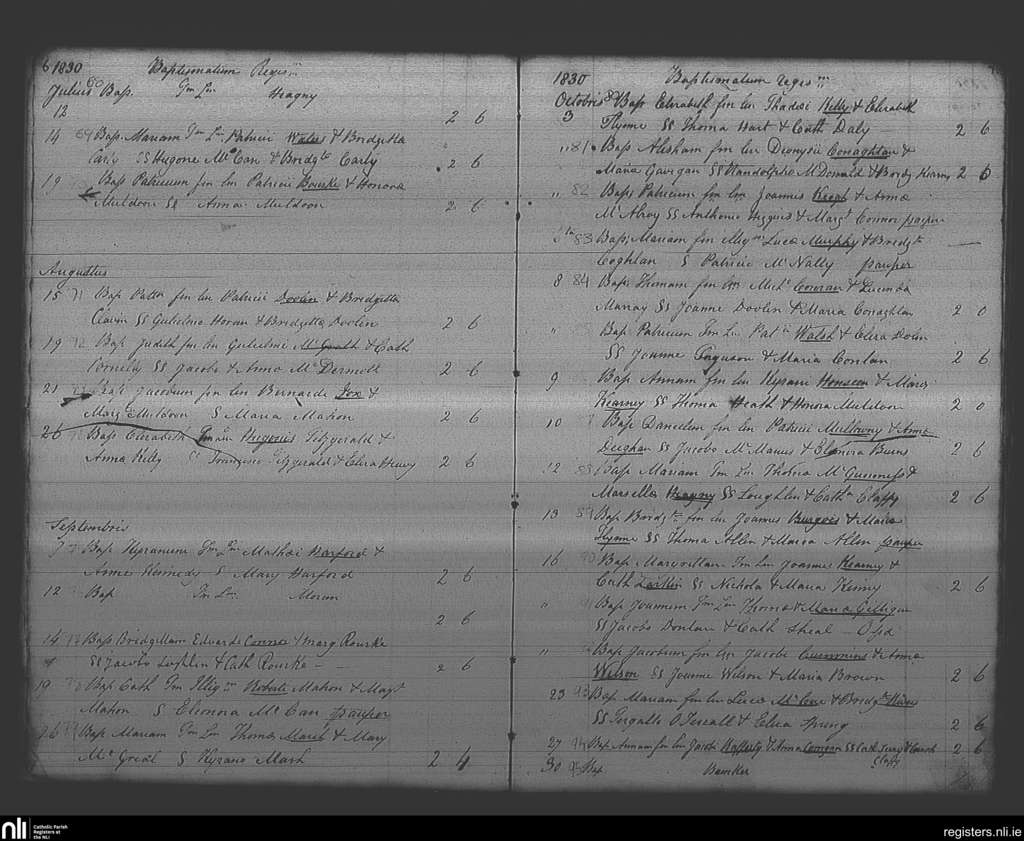 6 1830 Baptismatum Regis
Julius 80 Bap. Fm Lm Heagny
12 2 6
14 69 Bap. Mariam Fm Lm Patricii Wales & Bridgetta
Carly SS Hugone Mc Can & Bridgt Carly 2 6
19 Bap Patricium fm lm Patricii Bourke & Honora
Muldoon SS Anna Muldoon 2 6
Augustus
15 71 Bap Patm fm lm Patricii Dovlin & Bridgetta
Clavin SS Gulielmo Horan & Bridgetta Dovlin 2 6
19 72 Bap Judith fm lm Gulielmi & Cath
Connelly SS Jacobo & Anna Mc Dermott 2 6
21 Bap Jacobum fm lm Bernardi Fox &
Margt Muldoon S Maria Mahon 2 6
26 Bap Elizabeth Fmam Hugonis Fitzgerald &
Anna Kelly SS Francisco Fitzgerald & Eliza Henry 2 6
Septembris
7 Bap Kyranum Fm Lm Mathei Harford &
Anne Kennedy S Mary Harford 2 6
12 Bap Fm Lm Moran
2 6
14 Bap Bridgittam Edwardi Connor & Marg Rourke
SS Jacobo Loghlin & Cath Rourke — — 2 6
19 Bap Cath Fm Illigm Roberti Mahon & Magt
Mahon S Elenora Mc Can pauper
26 Bap Mariam Fm Lm Thoma Marsh & Mary
Mc Great S Kyrano Mash 2 4
1830 Baptismatum Regis
Octobris 80 Bap Elizabeth fm lm Thadei Kelly & Elizabeth
3 Flynne SS Thoma Hart & Cath Daly 2 6
" 81 Bap Abraham fm lm Dionysii Conaghtan &
Maria Gavigan SS Randolpho McDonald & Bridg Kearny 2 6
" 82 Bap Patricium fm lm Joannis Keogh & Anna
McAlroy SS Anthonio Higgins & Margt Connor pauper
83 Bap Mariam fm Illigm Luca Murphy & Bridgt —
Coghlan S Patricio Mc Nally pauper
8 84 Bap Thomam fm lm Michl Conran & Lucinda
Murray SS Joanne Dovlin & Maria Conaghtan 2 0
" Bap Patricium Fm Lm Pat Walsh & Eliza Dolin
SS Joanne Ferguson & Maria Conlan 2 6
9 Bap Annam fm lm Kyrani & Maria
Kearney SS Thoma Heath & Honora Muldoon 2 0
10 Bap Danielem fm lm Patricii Mullowny & Anna
Deeghan SS Jacobo McManus & Elenora Burns 2 6
12 88 Bap Mariam Fm Lm Thoma Mc Guinness &
Marsella Heagny SS Loughlin & Cathn Claffy 2 6
13 89 Bap Bridgtm fm lm Joannis Burgois & Maria
Flynne SS Thoma Allen & Maria Allen pauper
16 90 Bap Margaritam Fm Lm Joannis Kearny &
Cath Larkin SS Nichola & Maria Kenny 2 6
" 91 Bap Joannem Fm Lm Thoma & Maria Gilligan
SS Jacobo Donlan & Cath Sheal —
" Bap Jacobum fm lm Jacobi Cummins & Anna
Wilson SS Joanne Wilson & Maria Brown 2 6
23 93 Bap Mariam fm lm Luca & Bridgt
SS Fergallo & Eliza Spring 2 6
27 94 Bap Annam fm lm Jacobi Rafferty & Anna SS Cath & 2 6
Claffy
30 95 Bap Bamker
nli Catholic Parish
Registers at
the NLI
registers.nli.ie